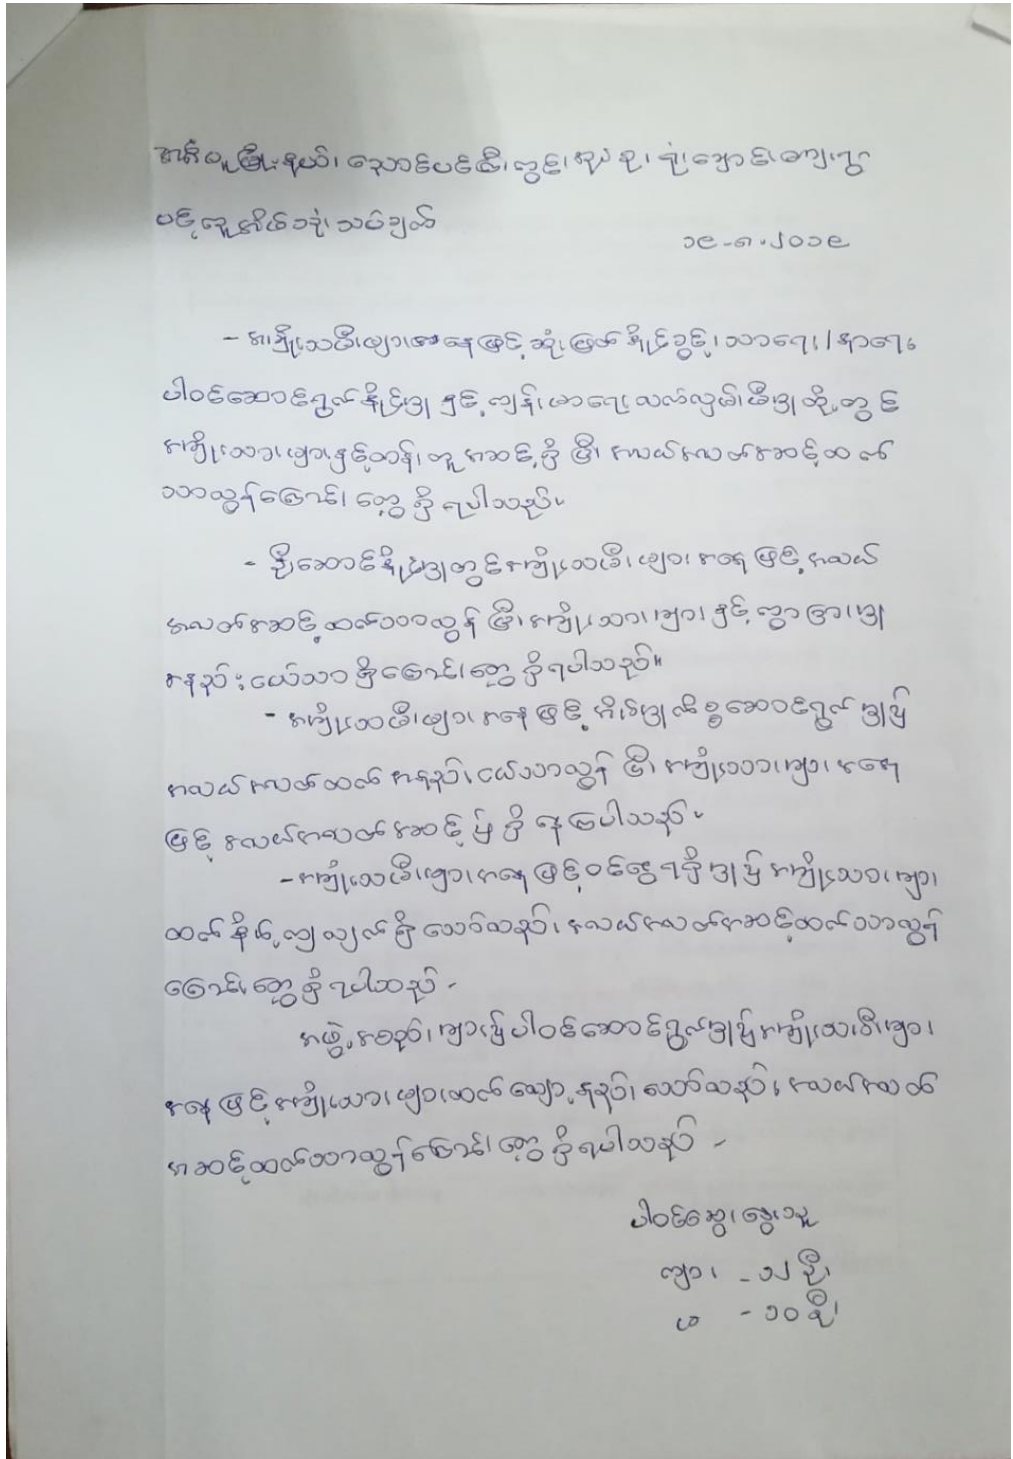 မြို့နယ်၊ ညောင်ပင်ဆိပ်ကျေးရွာ
သုံးသပ်ချက်
၁၉-၈-၂၀၁၉
- အမျိုးသမီးများအနေဖြင့် ဆုံးဖြတ်နိုင်ခွင့်၊ သာရေး/နာရေး
ပါဝင်ဆောင်ရွက်နိုင်မှု နှင့် ကျန်းမာရေး လက်လှမ်းမီမှု တို့တွင်
အမျိုးသားများနှင့်တန်းတူအဆင့်ရှိပြီး အလယ်အလတ်အဆင့်ထက်
သာလွန်ကြောင်း တွေ့ရှိရပါသည်။
- ဦးဆောင်နိုင်မှုတွင်အမျိုးသမီးများ အနေဖြင့် အလယ်
အလတ်အဆင့်ထက်သာလွန်ပြီး အမျိုးသားများနှင့် ကွာခြားမှု
အနည်းငယ်သာရှိကြောင်း တွေ့ရှိရပါသည်။
- အမျိုးသမီးများ အနေဖြင့် အိမ်မှုကိစ္စဆောင်ရွက်မှု၌
အလယ်အလတ်ထက် အနည်းငယ်သာလွန်ပြီး အမျိုးသားများ အနေ
ဖြင့် အလယ်အလတ်အဆင့်၌ ရှိနေပါသည်။
- အမျိုးသမီးများ အနေဖြင့်ဝင်ငွေရရှိမှု၌ အမျိုးသားများ
ထက် နိမ့်ကျလျက်ရှိသော်လည်း အလယ်အလတ်အဆင့်ထက်သာလွန်
ကြောင်း တွေ့ရှိရပါသည်-
အဖွဲ့အစည်းများ၌ပါဝင်ဆောင်ရွက်မှု၌အမျိုးသမီးများ
အနေဖြင့်အမျိုးသားများထက်လျော့နည်းသော်လည်း အလယ်အလတ်
အဆင့်ထက်သာလွန်ကြောင်း တွေ့ရှိရပါသည်-
ပါဝင်ဆွေးနွေးသူ
ကျား - ၁၂ ဦး
မ - ၁၀ ဦး